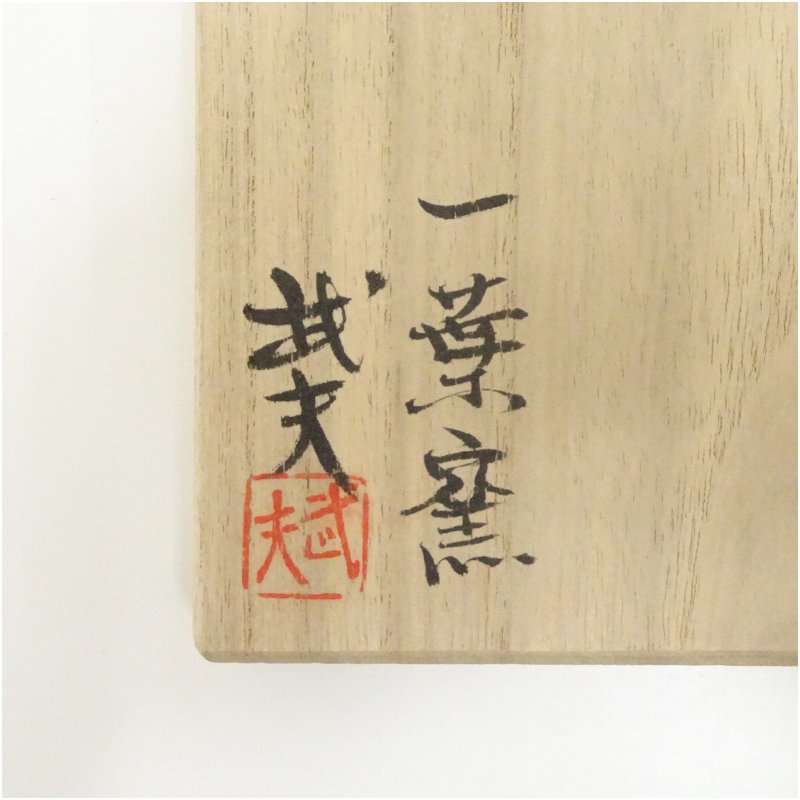 一葉窯
武夫
武夫